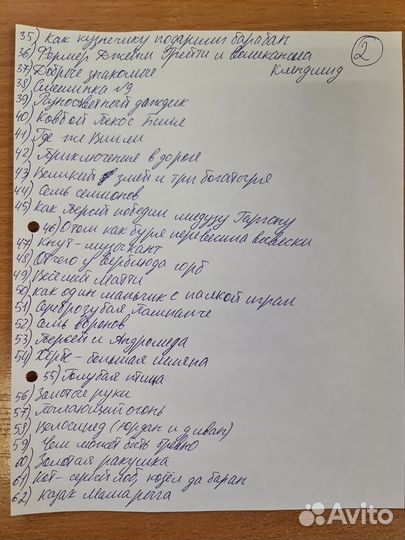 35) Как кузнечику подарили барабан
2
36) Фермер Джейми Грейти и Великанша
Клендмид
37) Доброе знакомые
38) Смешинка №9
39) Разноцветный дождик
40) Ковбой Пекос Билл
41) Где же Вилли
42) Приключение в дороге
43) Великий змей и три богатыря
44) Семь семионов
45) Как Персей победил медузу Горгону
46) О том как буря перевесила вывески
47) Кнут-музыкант
48) Отчего у верблюда горб
49) Весёлый Матти
50) Как один мальчик с палкой играл
51) Сереброзубая
52) Семь воронов
53) Персей и Андромеда
54) - большая
55) Голубая птица
56) Золотые руки
57) Пылающий огонь
58) Велосипед (Юрдан и диван)
59) Чем может быть бревно
60) Золотая ракушка
61) Кот-серый лоб, козёл да баран
62) Казак Мамарыга
Avito